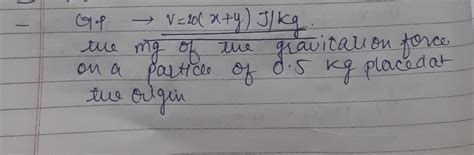 – G.P. → V=20(x+y) J/kg.
the mg of the gravitation force
on a particle of 0.5 kg placed at
the origin